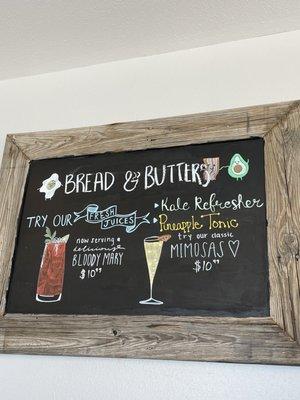 BREAD & BUTTERS
TRY OUR FRESH JUICES
Kale Refresher
Pineapple Tonic
now serving a
delicious
BLOODY MARY
$10⁹⁹
try our classic
MIMOSAS
$10⁹⁹